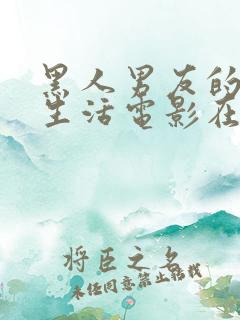 黑人男友的
生活电影在
将臣之名
未经同意禁止转载